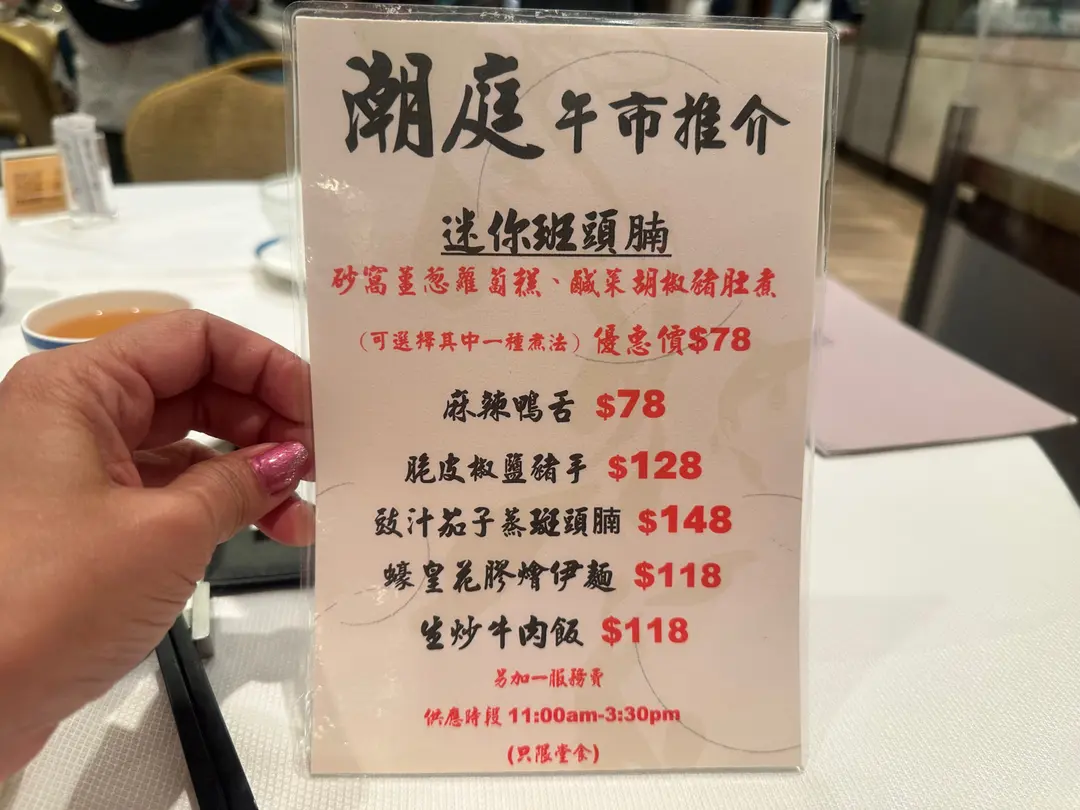 潮庭 午市推介
迷你班頭腩
砂窩薑葱蘿蔔糕、鹹菜胡椒豬肚煮
(可選擇其中一種煮法) 優惠價$78
麻辣鴨舌 $78
脆皮椒鹽豬手 $128
豉汁茄子蒸斑頭腩 $148
蠔皇花膠燴伊麵 $118
生炒牛肉飯 $118
另加一服務費
供應時段 11:00am-3:30pm
(只限堂食)